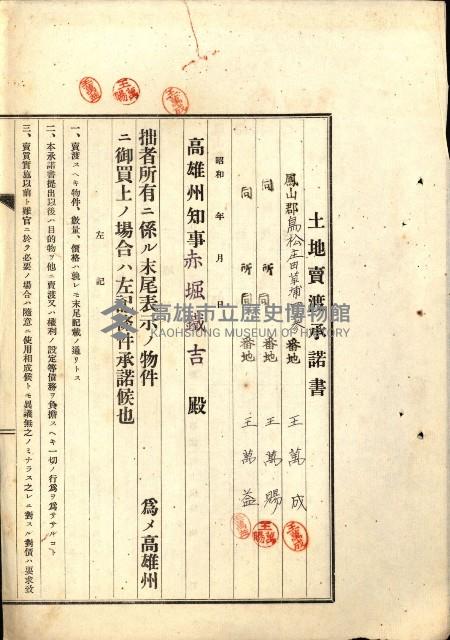 土地賣渡承諾書
鳳山郡鳥松庄田草埔 番地 王萬成
同所同 番地 王萬賜
同所同 番地 王萬益
昭和 年 月 日
高雄州知事赤堀鐵吉殿
拙者所有ニ係ル末尾表示ノ物件 為メ高雄州
ニ御買上ノ場合ハ左記條件承諾候也
左記
一、賣渡スヘキ物件、數量、價格ハ總レモ末尾記載ノ通リトス
二、本承諾書提出以後ハ目的物ヲ他ニ賣渡又ハ權利ノ設定等債務ヲ負擔スヘキ一切ノ行為ヲ為ササルコト
三、賣買實施以前ト雖官ニ於テ必要ノ場合ハ隨意ニ使用相成候トモ異議無之ノミナラス之レニ對スル對價ハ要求致
王萬益
王萬賜
王萬成
王萬成
王萬賜
王萬益
高雄市立歷史博物館
KAOHSIUNG MUSEUM OF HISTORY